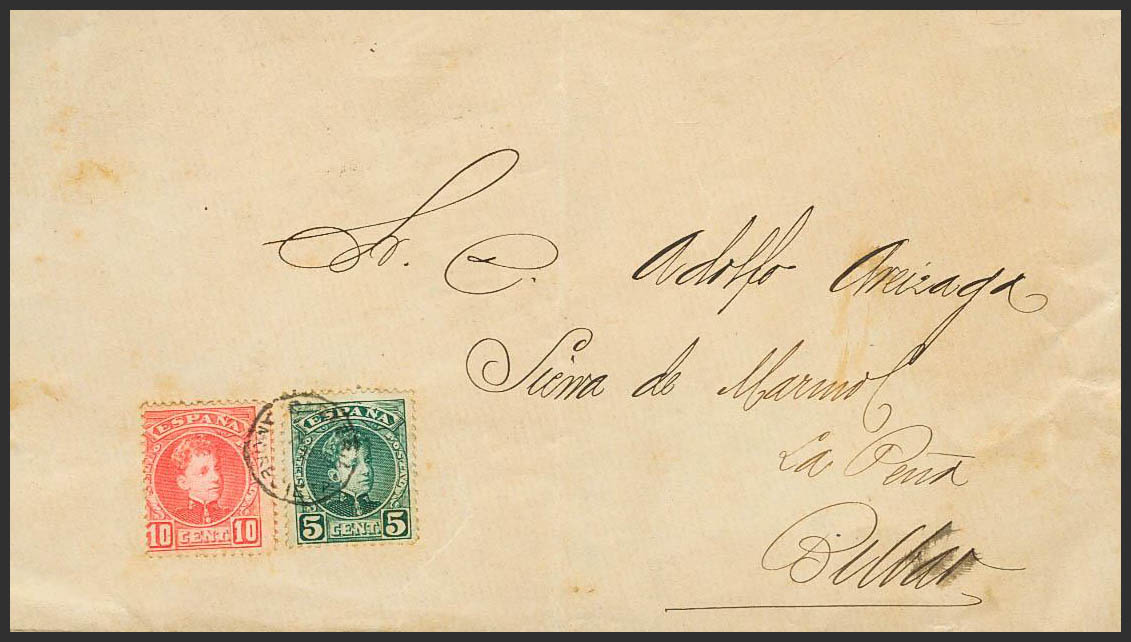 Sr. D. Adolfo Areizaga
Sierra de Marmol
La Peña
Bilbao
ESPAÑA
10 CENT. 10
ESPAÑA
5 CENT. 5